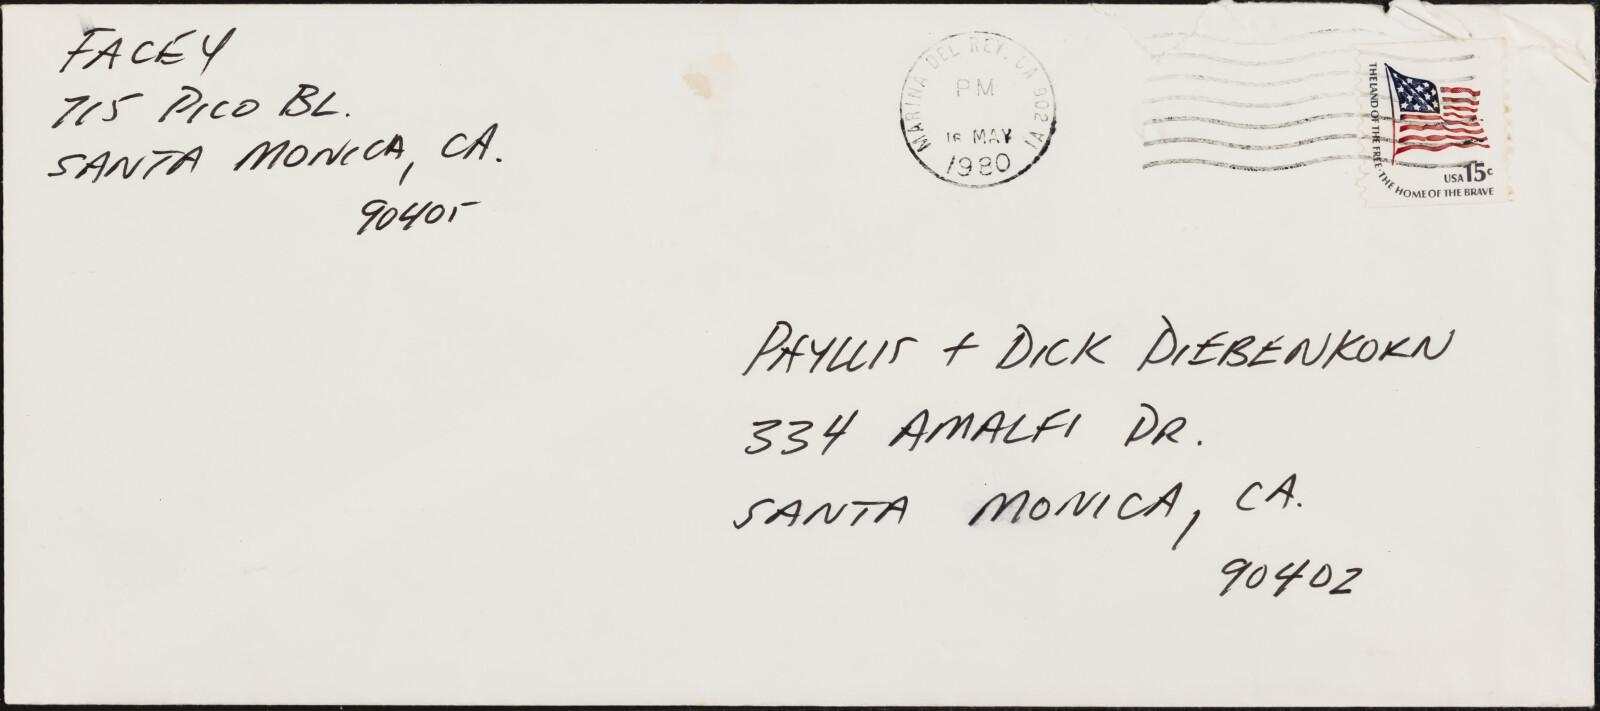 FACEY
715 PICO BL.
SANTA MONICA, CA.
90405
MARINA DEL REY, CA 902
PM
16 MAY
1980
THE LAND OF THE FREE · THE HOME OF THE BRAVE
USA 15c
PHYLLIS + DICK DIEBENKORN
334 AMALFI DR.
SANTA MONICA, CA.
90402